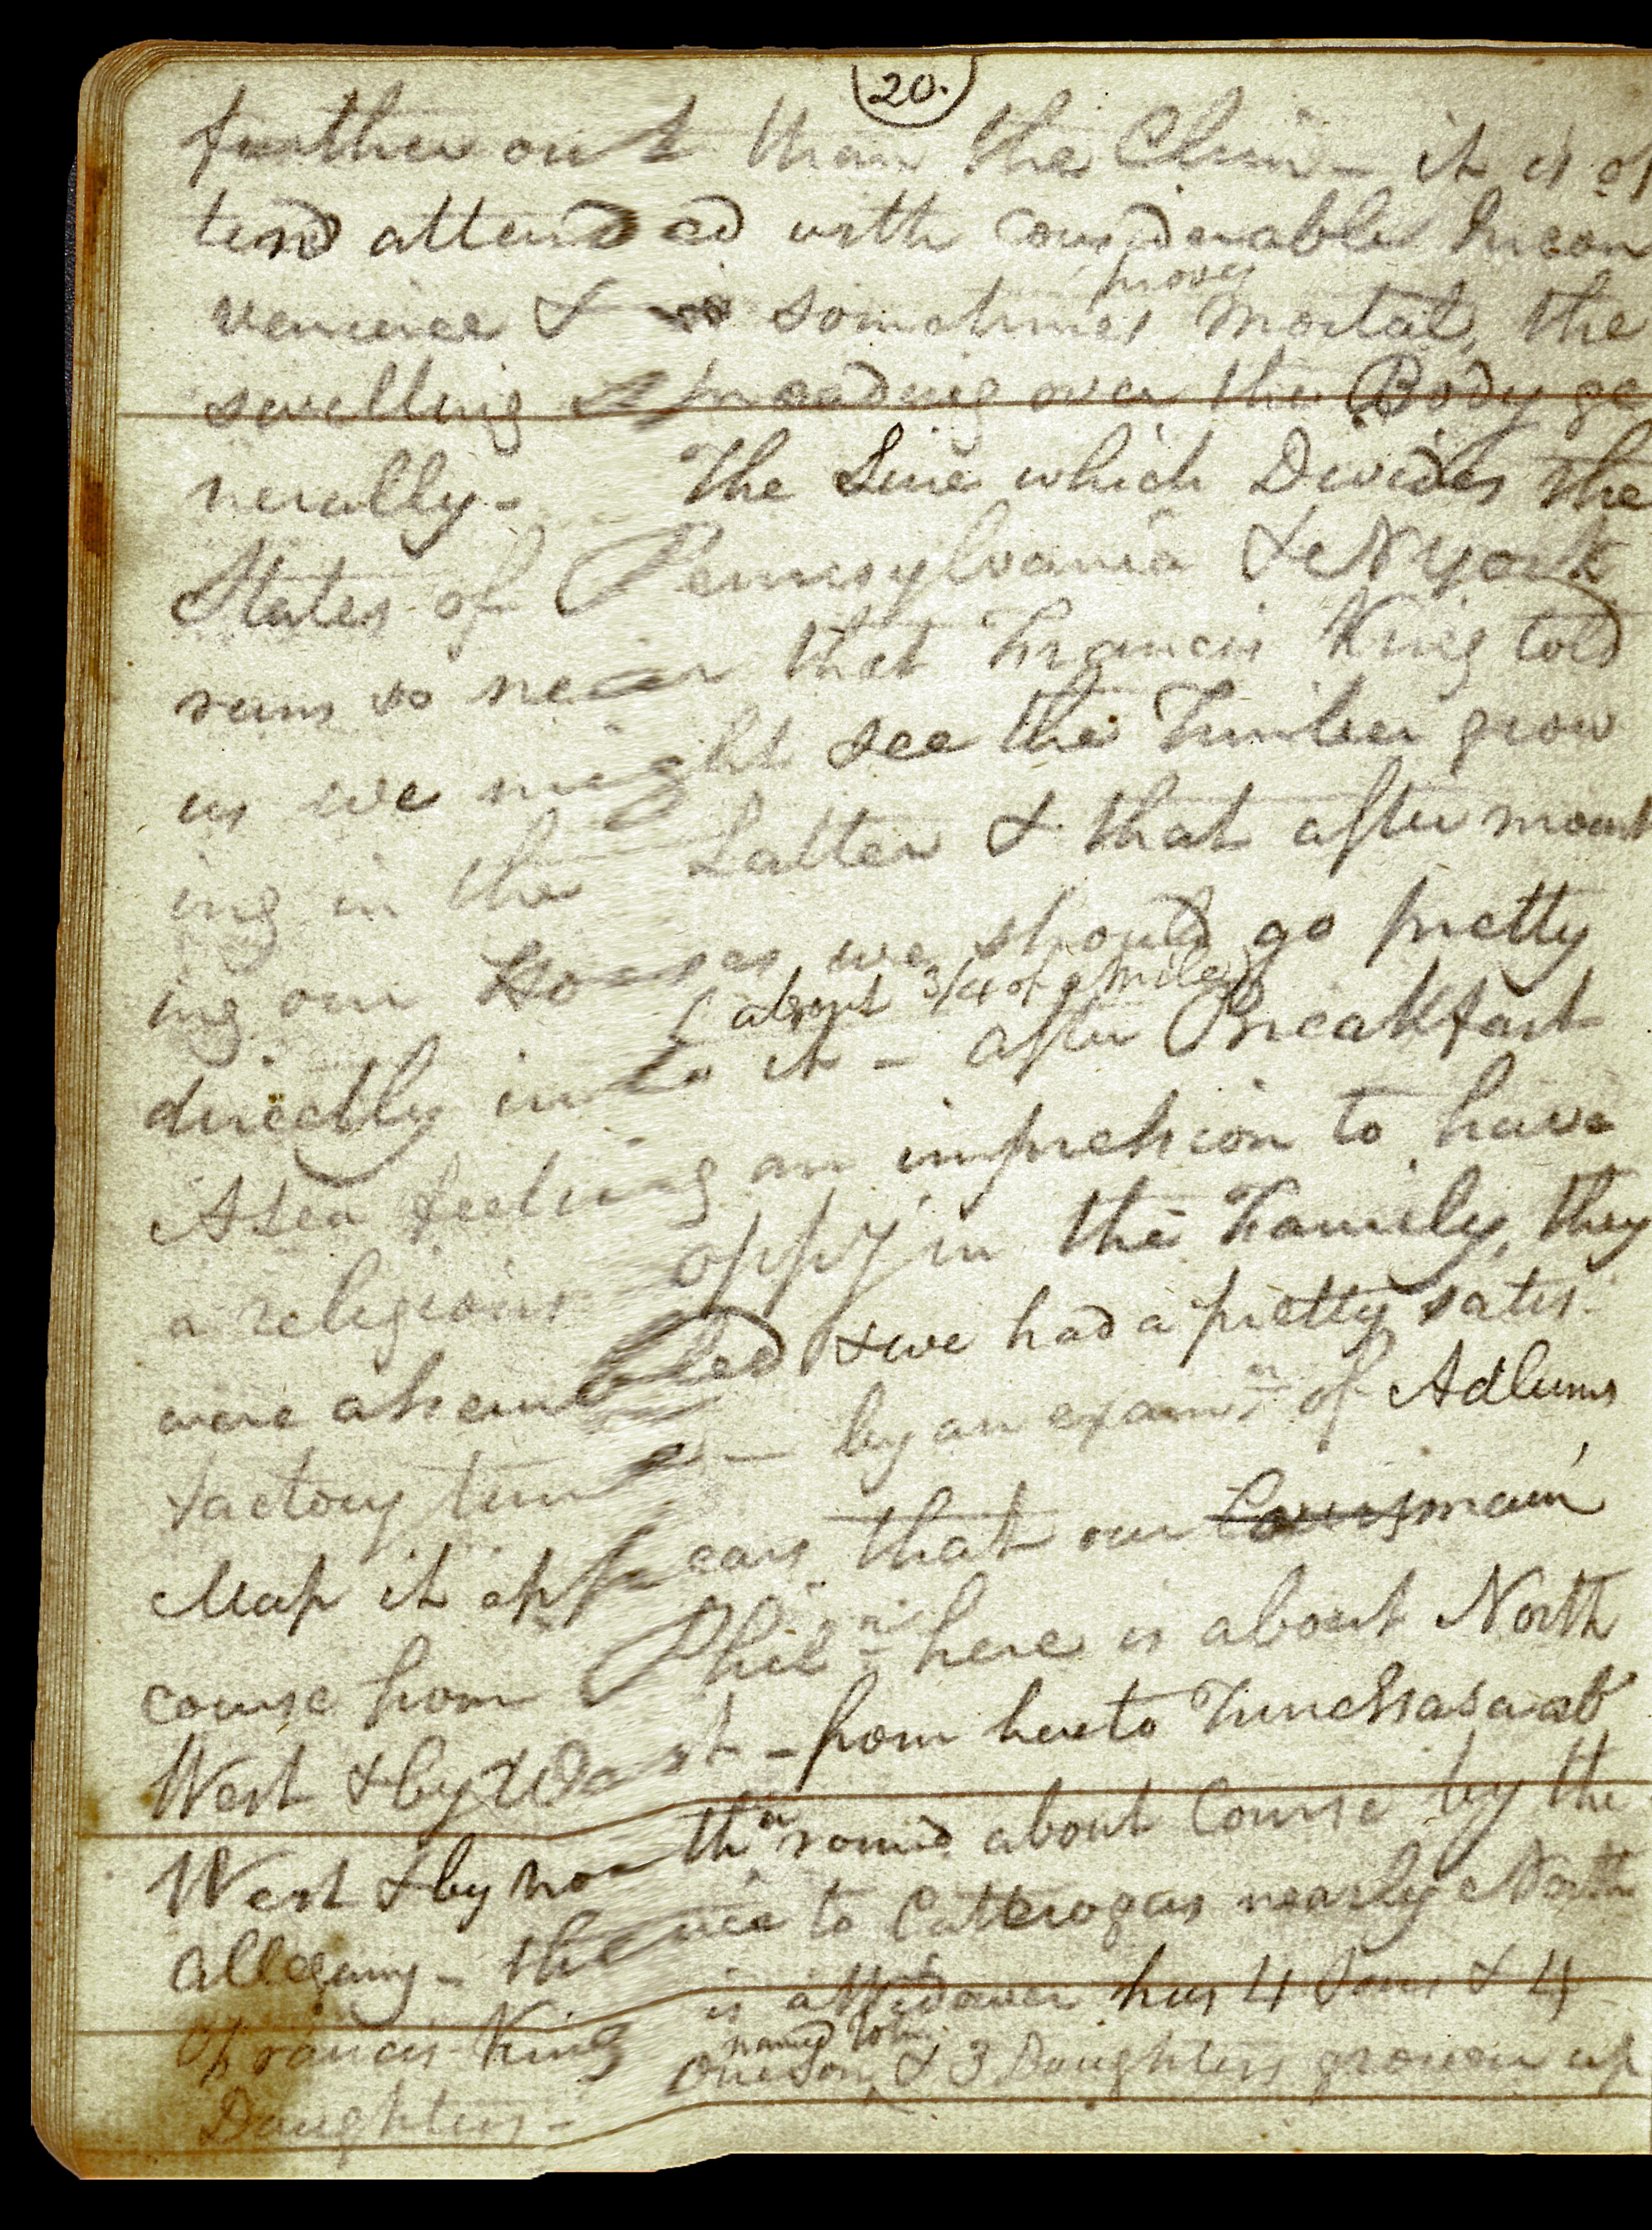 20.
further out than the Chin - it is of
tend attended with considerable Incon
venience & sometimes proves mortal, the
swelling spreading over the Body ge
nerally - The Line which Divides the
States of Pennsylvania & N York
runs so near that Francis King told
us we might see the Timber grow
ing in the Latter & that after mount
ing our Horses we should go pretty
directly into it - (about 3/4 of a mile) after Breakfast
Asea feeling an impression to have
a religious oppy in the Family, they
were assembled & we had a pretty satis-
factory time - by an examn of Adlums
Map it appears that our main
course from Philni here is about North
West & by West - from here to Tunessasa abt
West & by north a round about Course by the
allegany - thence to Catterogas nearly North
Francis King is a Widower has 4 Sons & 4
Daughters - One son named John & 3 Daughters grown up